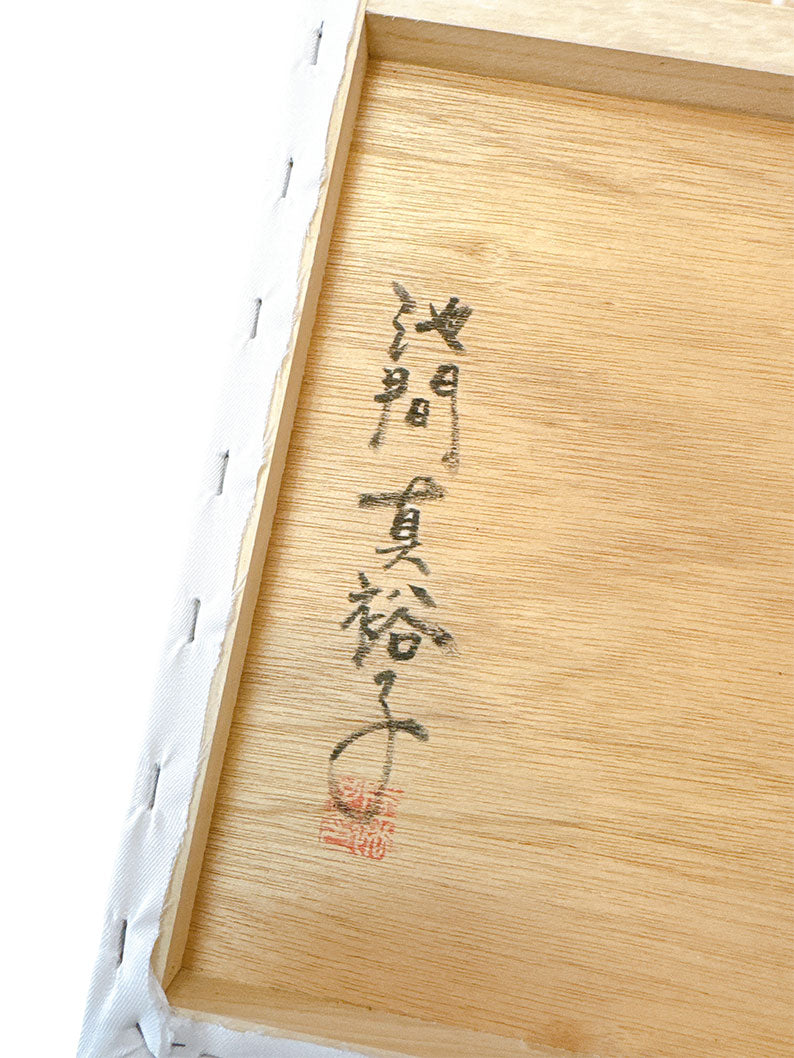 池間真裕子